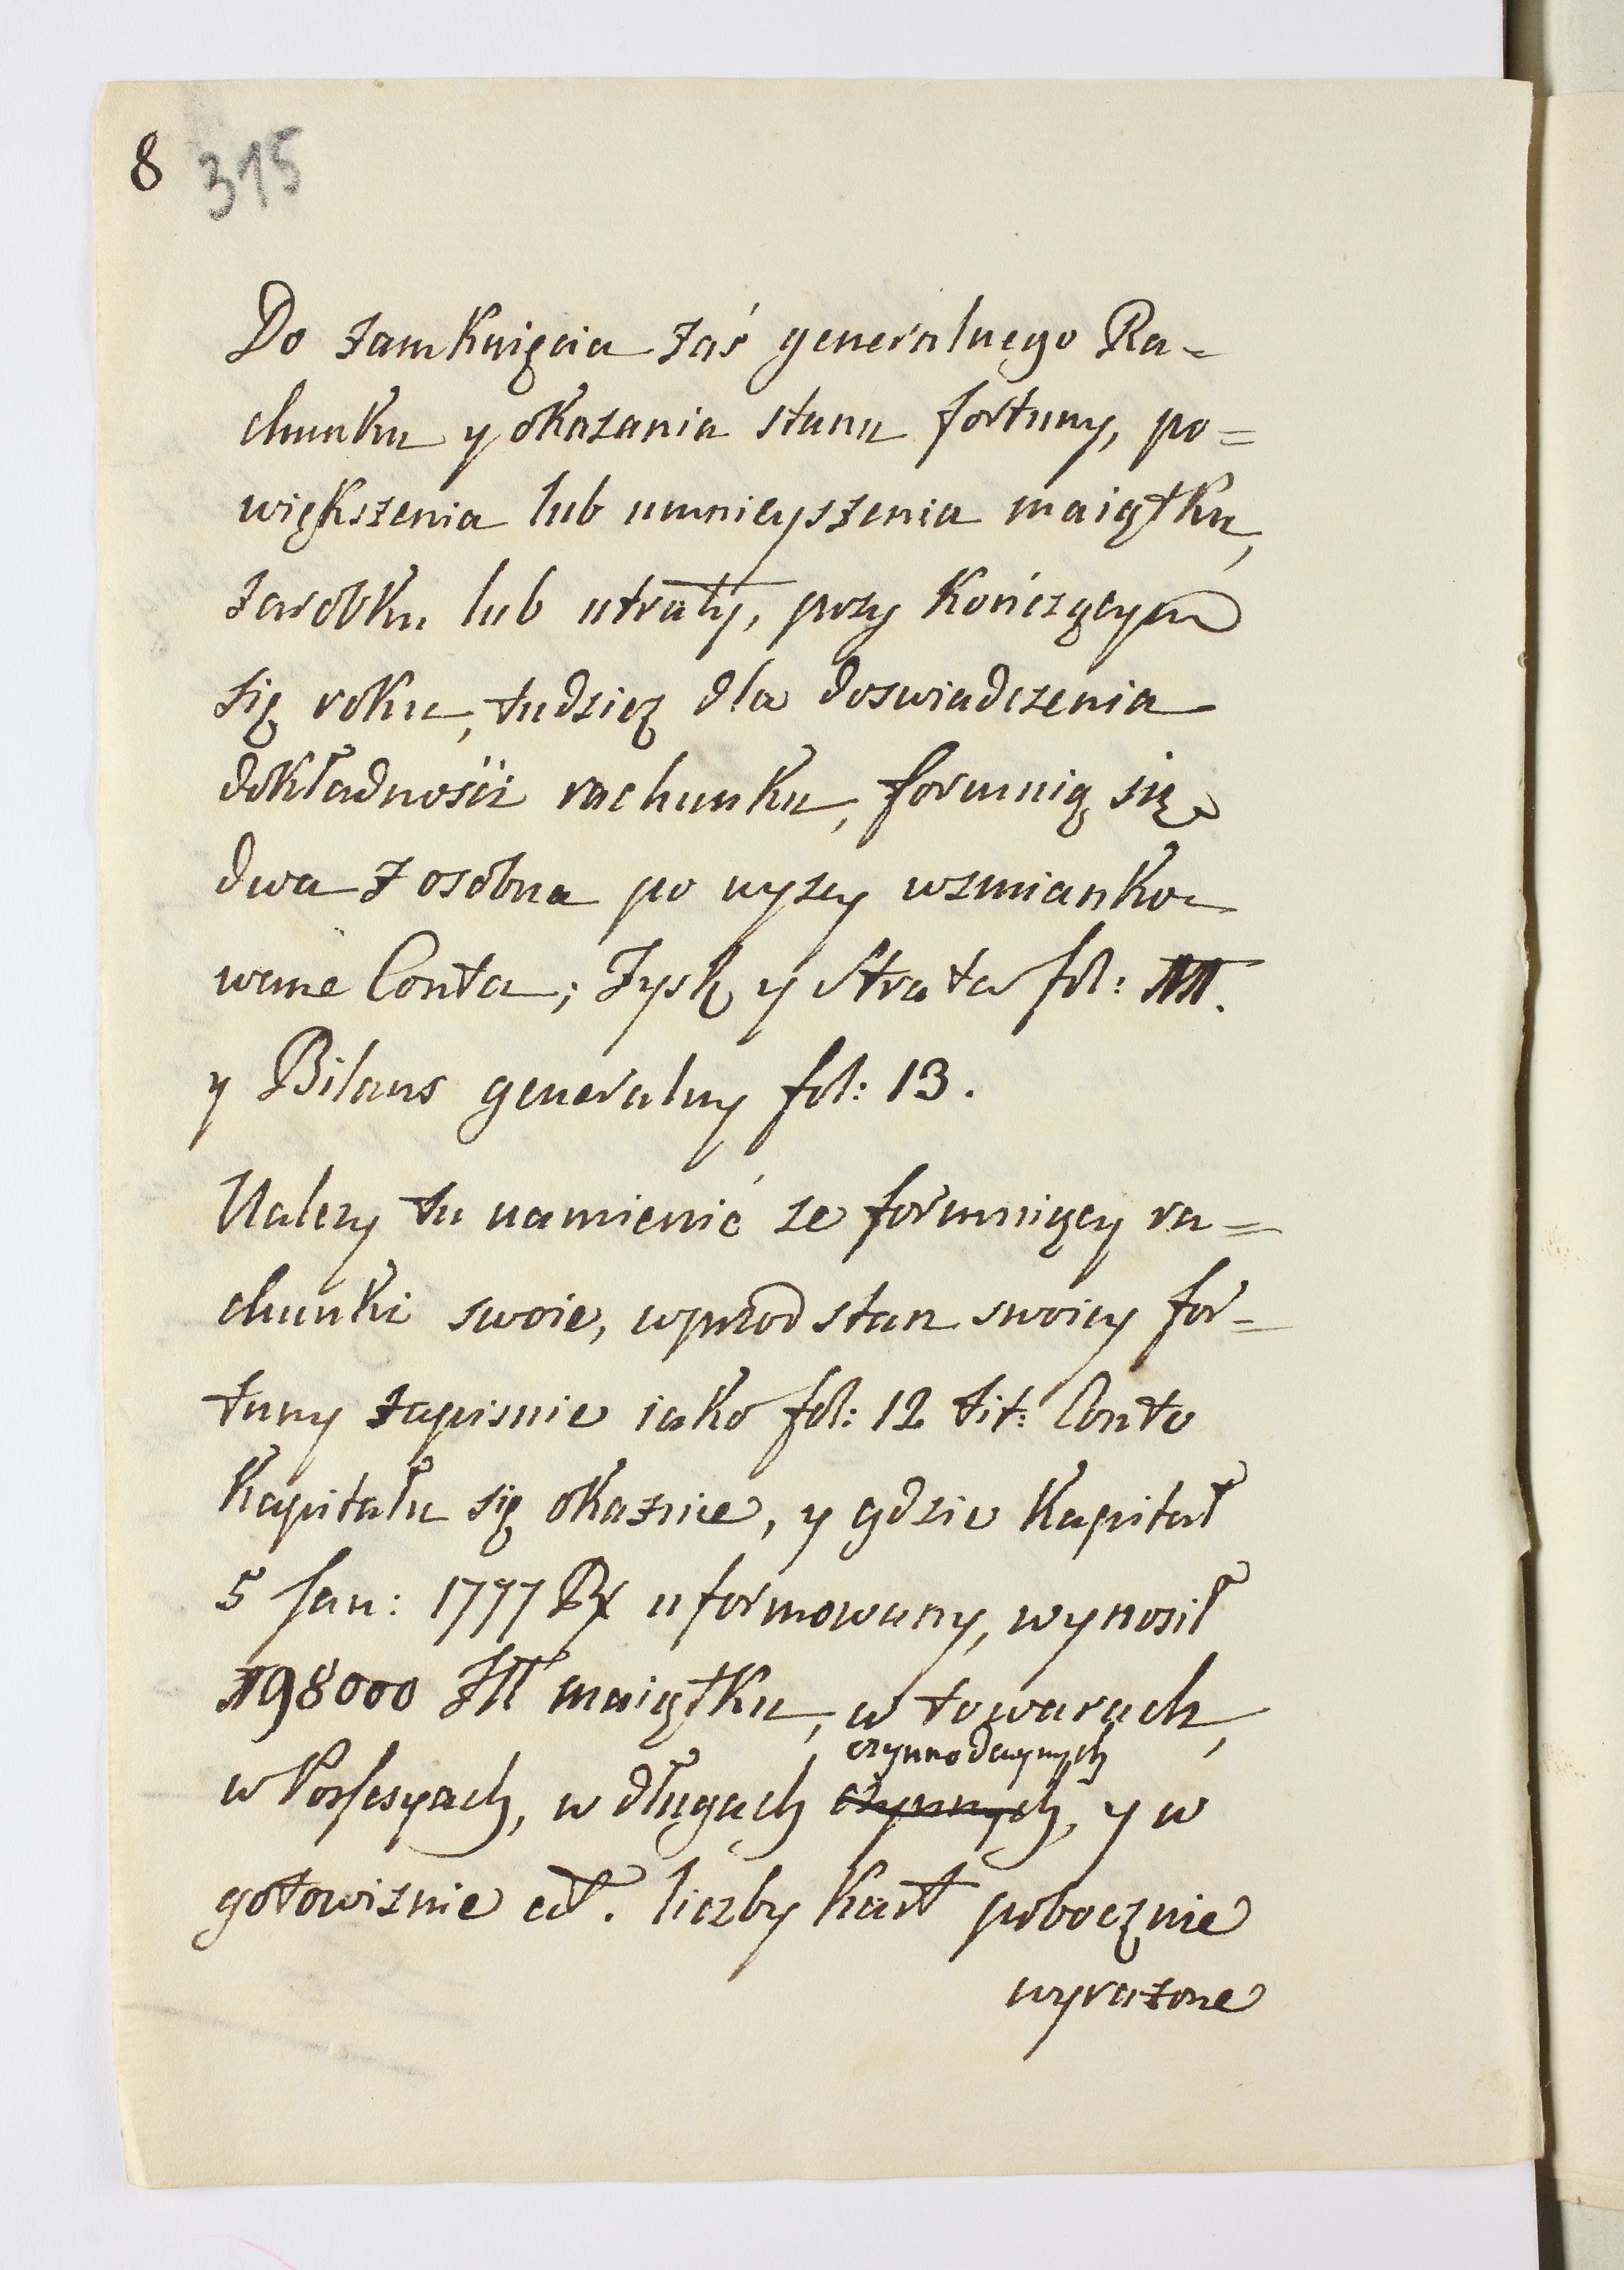 8 315
Do zamknięcia zaś generalnego Ra=
chunku y okazania stanu fortuny, po=
większenia lub umnieyszenia maiątku,
zarobku lub utraty, przy kończącym
się roku, tudzież dla doswiadczenia
dokładności rachunku, formuią się
dwa z osobna po wyzey wzmianko=
wane Conta; Zysk y Strata fol: 11.
y Bilans generalny fol: 13.
Nalezy tu namienić ze formuiący ra=
chunki swoie, wprzod stan swoiey for=
tuny zapisuie iako fol: 12 tit: Conto
Kapitału się okazuie, y gdzie Kapitał
5 Jan: 1777 R uformowany, wynosił
198000 Złł maiątku, w towarach,
czynnodawnych
w Possesyach, w długach czynnych, y w
gotowiznie ect. liczby kart pobocznie
wyrażone